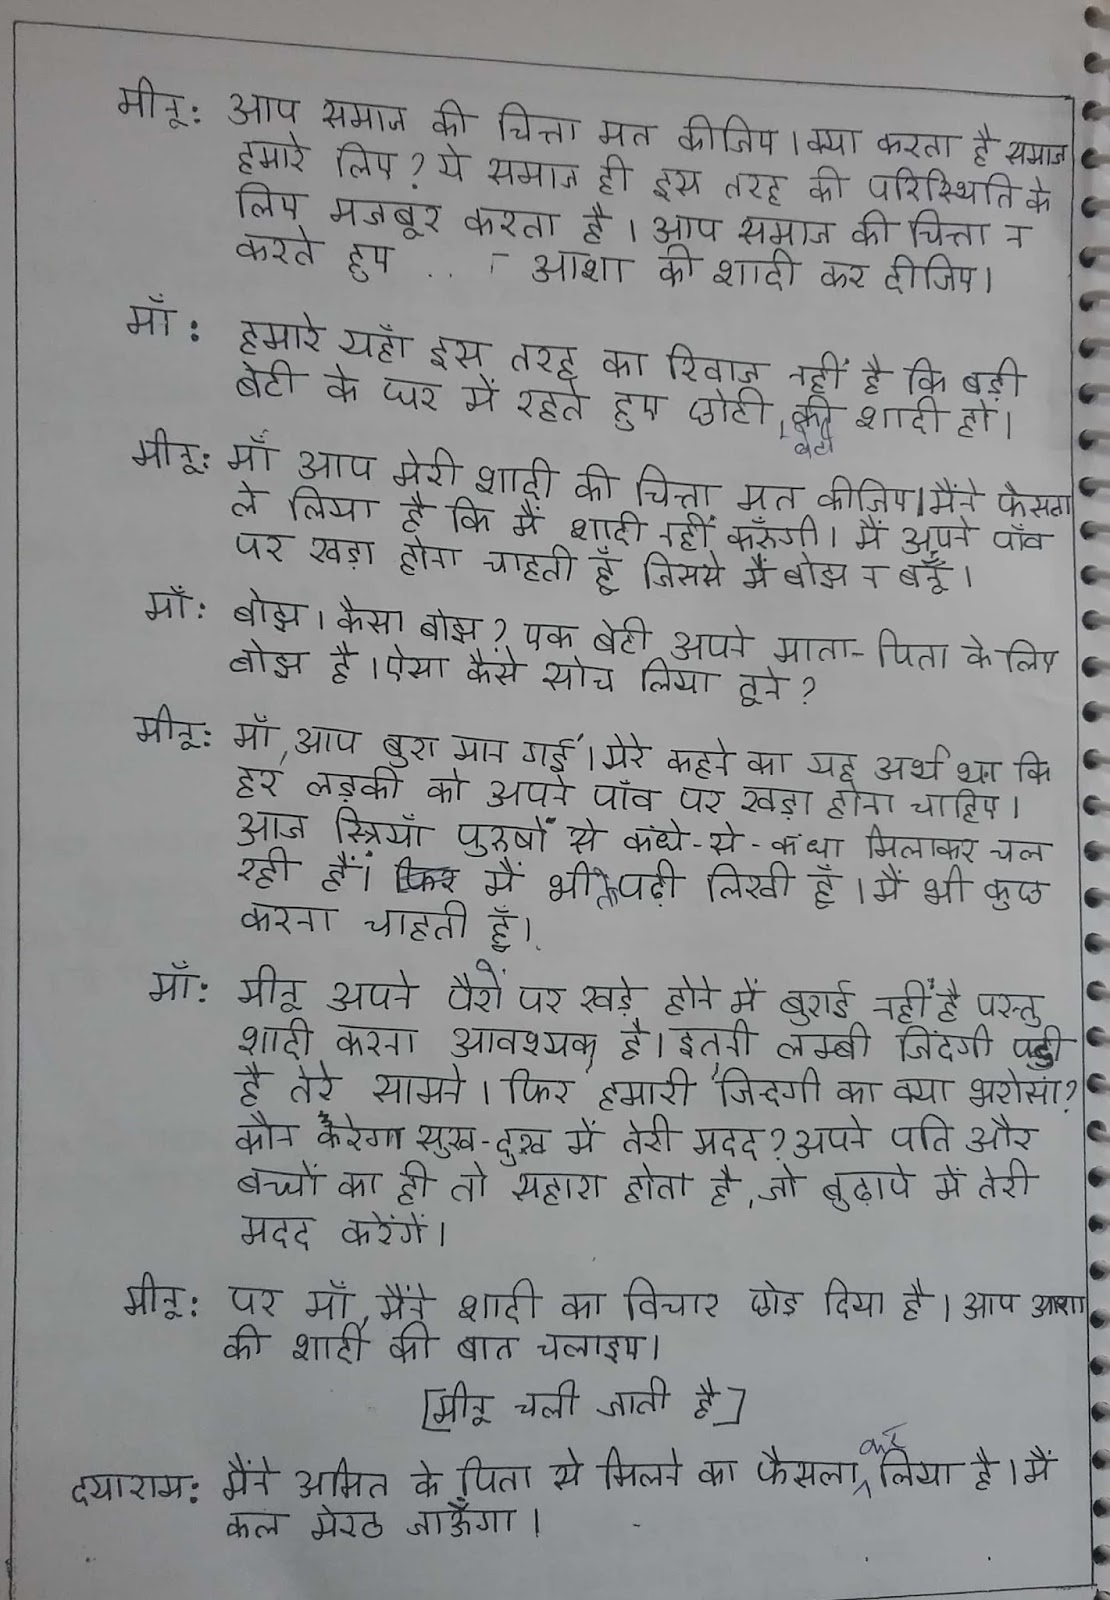 मीनू: आप समाज की चिन्ता मत कीजिए। क्या करता है समाज
हमारे लिए? ये समाज ही इस तरह की परिस्थिति के
लिए मजबूर करता है। आप समाज की चिन्ता न
करते हुए ... - आशा की शादी कर दीजिए।
माँ: हमारे यहाँ इस तरह का रिवाज नहीं है कि बड़ी
बेटी के घर में रहते हुए छोटी बेटी की शादी हो।
मीनू: माँ आप मेरी शादी की चिन्ता मत कीजिए। मैंने फैसला
ले लिया है कि मैं शादी नहीं करूँगी। मैं अपने पाँव
पर खड़ा होना चाहती हूँ जिससे मैं बोझ न बनूँ।
माँ: बोझ। कैसा बोझ? एक बेटी अपने माता-पिता के लिए
बोझ है। ऐसा कैसे सोच लिया तूने?
मीनू: माँ, आप बुरा मान गईं। मेरे कहने का यह अर्थ था कि
हर लड़की को अपने पाँव पर खड़ा होना चाहिए।
आज स्त्रियाँ पुरुषों से कंधे-से-कंधा मिलाकर चल
रही हैं। फिर मैं भी तो पढ़ी लिखी हूँ। मैं भी कुछ
करना चाहती हूँ।
माँ: मीनू अपने पैरों पर खड़े होने में बुराई नहीं है परन्तु
शादी करना आवश्यक है। इतनी लम्बी जिंदगी पड़ी
है तेरे सामने। फिर हमारी जिन्दगी का क्या भरोसा?
कौन करेगा सुख-दुख में तेरी मदद? अपने पति और
बच्चों का ही तो सहारा होता है, जो बुढ़ापे में तेरी
मदद करेंगें।
मीनू: पर माँ, मैंने शादी का विचार छोड़ दिया है। आप आशा
की शादी की बात चलाइए।
[मीनू चली जाती है]
दयाराम: मैंने अमित के पिता से मिलने का फैसला कर लिया है। मैं
कल मेरठ जाऊँगा।